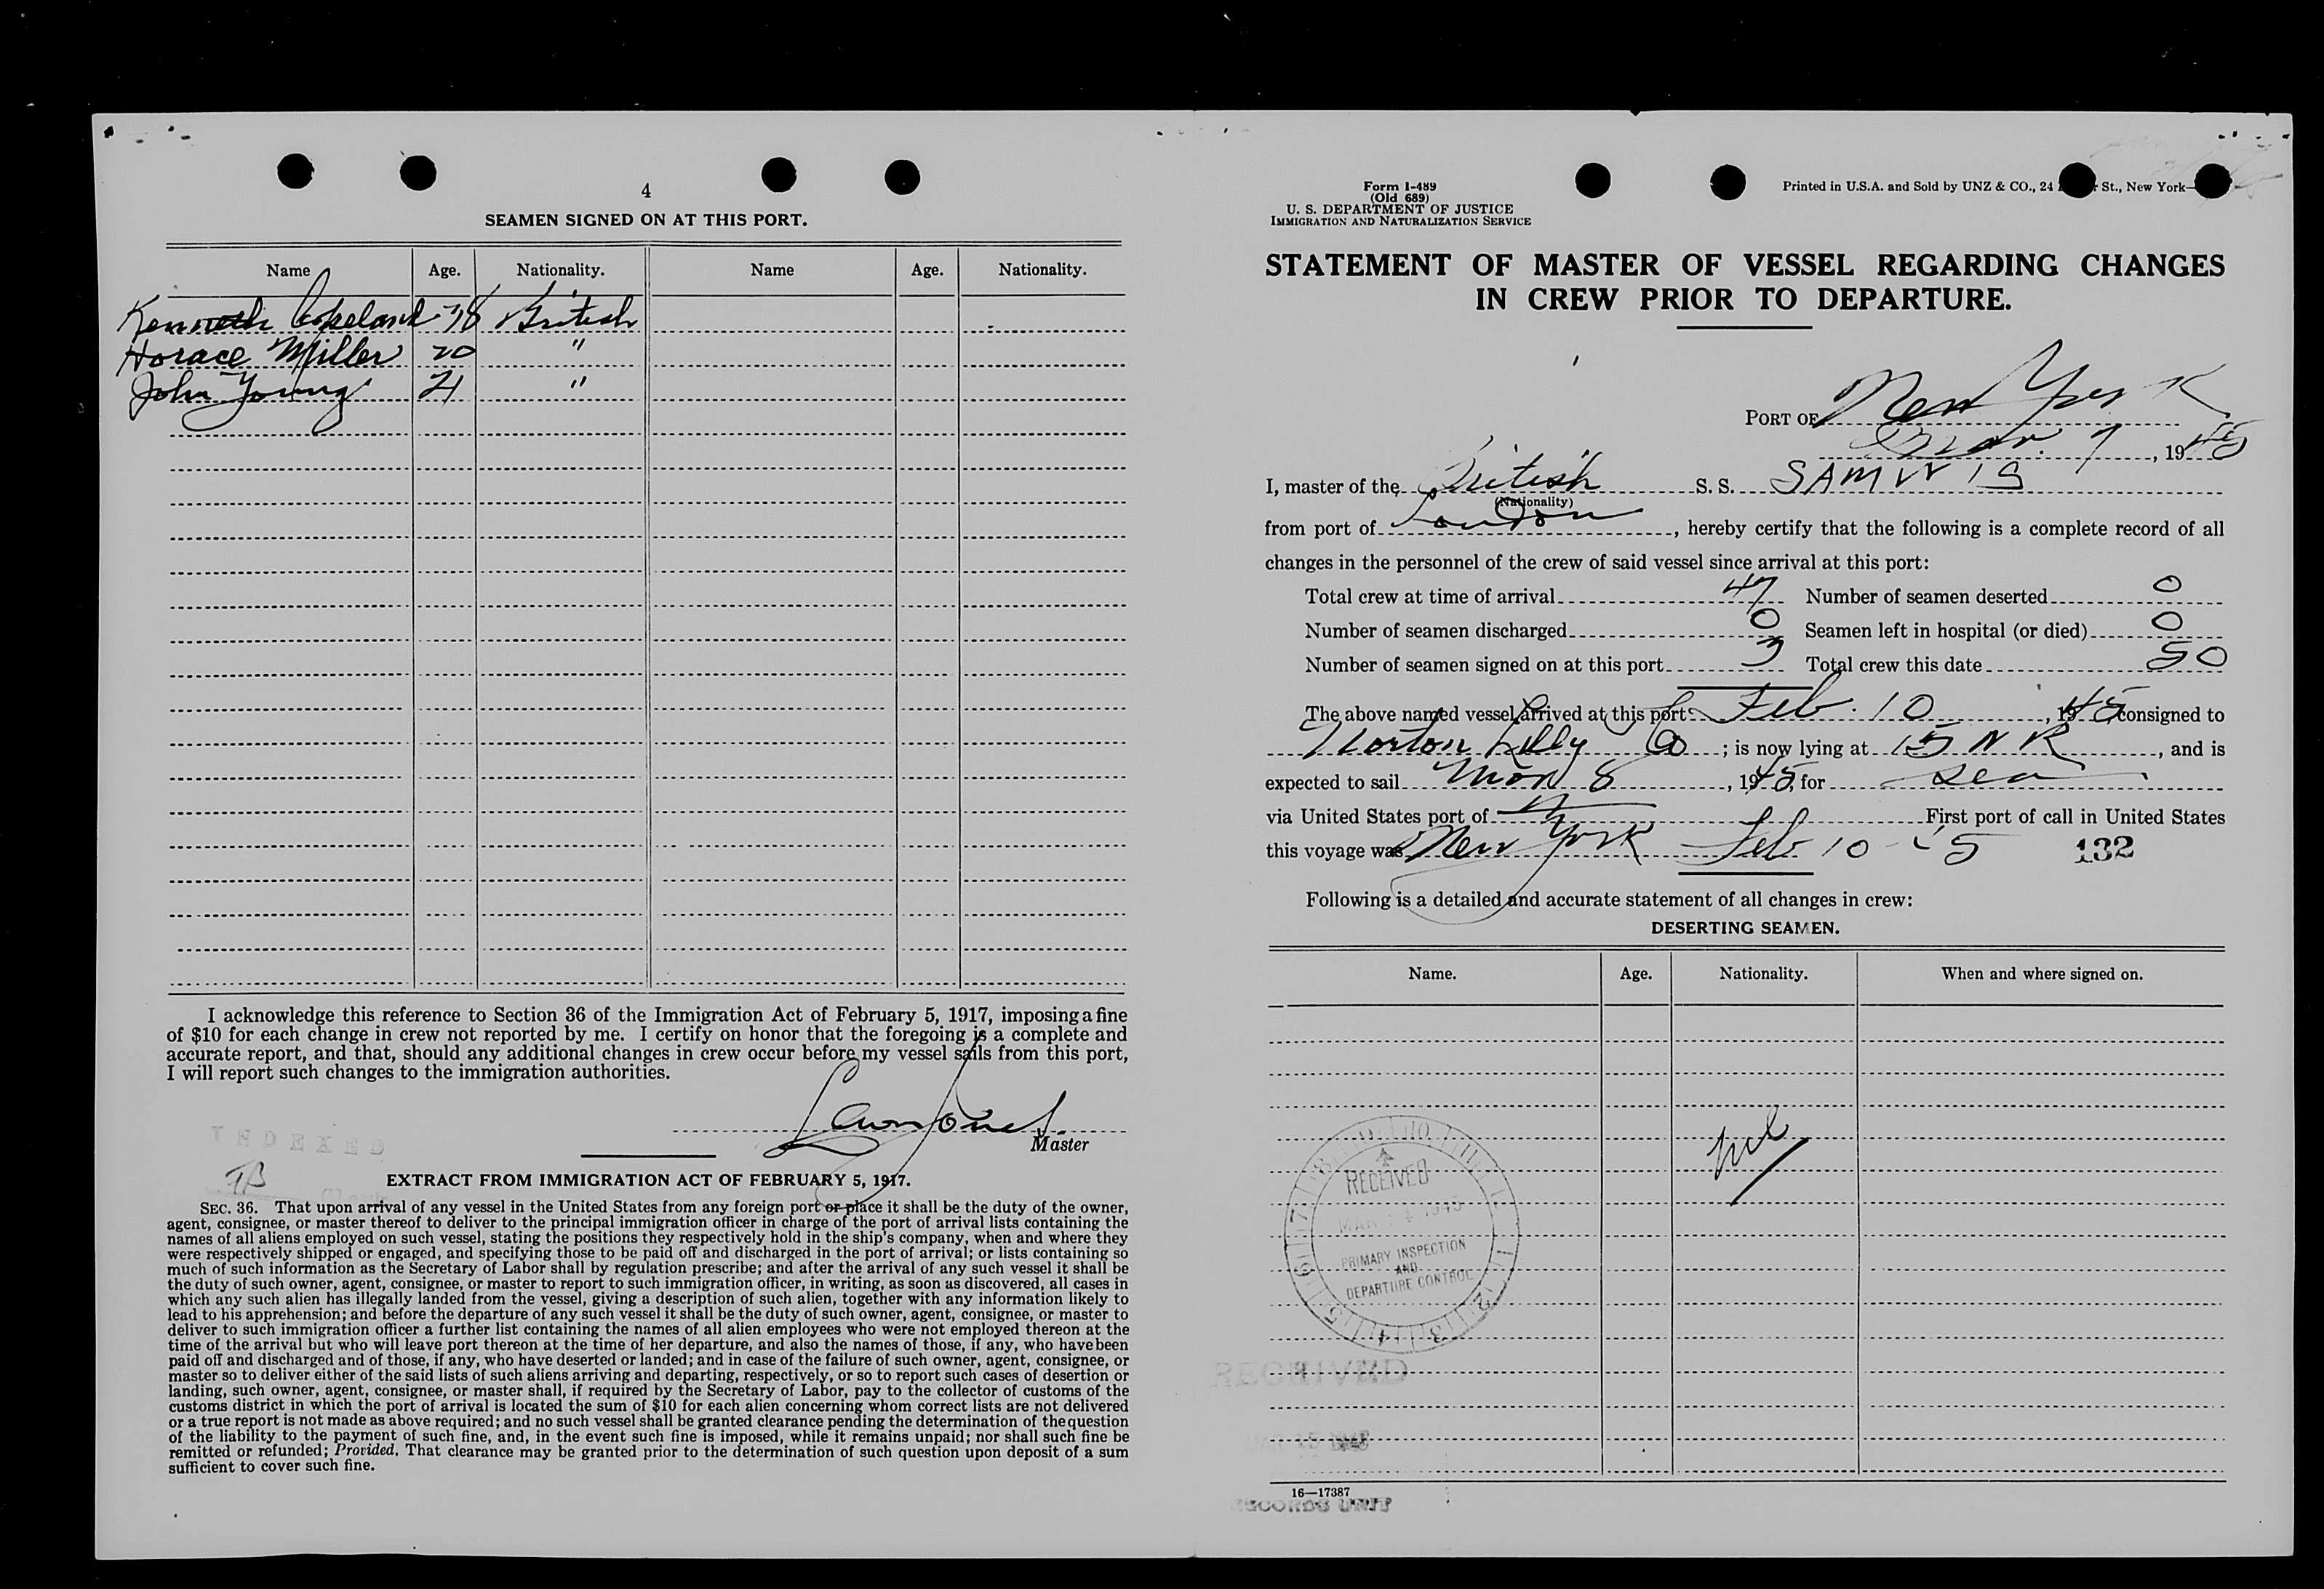 4
SEAMEN SIGNED ON AT THIS PORT.
Name Age. Nationality. Name Age. Nationality.
Kenneth Copeland 18 British
Horace Miller 20 "
John Young 21 "
I acknowledge this reference to Section 36 of the Immigration Act of February 5, 1917, imposing a fine
of $10 for each change in crew not reported by me. I certify on honor that the foregoing is a complete and
accurate report, and that, should any additional changes in crew occur before my vessel sails from this port,
I will report such changes to the immigration authorities.
Master
INDEXED
TB
Clerk
EXTRACT FROM IMMIGRATION ACT OF FEBRUARY 5, 1917.
SEC. 36. That upon arrival of any vessel in the United States from any foreign port or place it shall be the duty of the owner,
agent, consignee, or master thereof to deliver to the principal immigration officer in charge of the port of arrival lists containing the
names of all aliens employed on such vessel, stating the positions they respectively hold in the ship's company, when and where they
were respectively shipped or engaged, and specifying those to be paid off and discharged in the port of arrival; or lists containing so
much of such information as the Secretary of Labor shall by regulation prescribe; and after the arrival of any such vessel it shall be
the duty of such owner, agent, consignee, or master to report to such immigration officer, in writing, as soon as discovered, all cases in
which any such alien has illegally landed from the vessel, giving a description of such alien, together with any information likely to
lead to his apprehension; and before the departure of any such vessel it shall be the duty of such owner, agent, consignee, or master to
deliver to such immigration officer a further list containing the names of all alien employees who were not employed thereon at the
time of the arrival but who will leave port thereon at the time of her departure, and also the names of those, if any, who have been
paid off and discharged and of those, if any, who have deserted or landed; and in case of the failure of such owner, agent, consignee, or
master so to deliver either of the said lists of such aliens arriving and departing, respectively, or so to report such cases of desertion or
landing, such owner, agent, consignee, or master shall, if required by the Secretary of Labor, pay to the collector of customs of the
customs district in which the port of arrival is located the sum of $10 for each alien concerning whom correct lists are not delivered
or a true report is not made as above required; and no such vessel shall be granted clearance pending the determination of the question
of the liability to the payment of such fine, and, in the event such fine is imposed, while it remains unpaid; nor shall such fine be
remitted or refunded; Provided, That clearance may be granted prior to the determination of such question upon deposit of a sum
sufficient to cover such fine.
Form I-489
(Old 689)
U. S. DEPARTMENT OF JUSTICE
IMMIGRATION AND NATURALIZATION SERVICE
Printed in U.S.A. and Sold by UNZ & CO., 24 St., New York
STATEMENT OF MASTER OF VESSEL REGARDING CHANGES
IN CREW PRIOR TO DEPARTURE.
PORT OF New York
Mar. 7, 1945
I, master of the British S. S. SAMWIS
(Nationality)
from port of London, hereby certify that the following is a complete record of all
changes in the personnel of the crew of said vessel since arrival at this port:
Total crew at time of arrival 47 Number of seamen deserted 0
Number of seamen discharged 0 Seamen left in hospital (or died) 0
Number of seamen signed on at this port 3 Total crew this date 50
The above named vessel arrived at this port Feb. 10, 1945 consigned to
Norton Lilly Co; is now lying at 15 N R, and is
expected to sail Mar 8, 1945, for sea
via United States port of First port of call in United States
this voyage was New York Feb 10 - 45 132
Following is a detailed and accurate statement of all changes in crew:
DESERTING SEAMEN.
Name. Age. Nationality. When and where signed on.
nil
RECEIVED
MAR 1945
PRIMARY INSPECTION
AND
DEPARTURE CONTROL
RECEIVED
MAR 15
16—17387
RECORDS UNIT